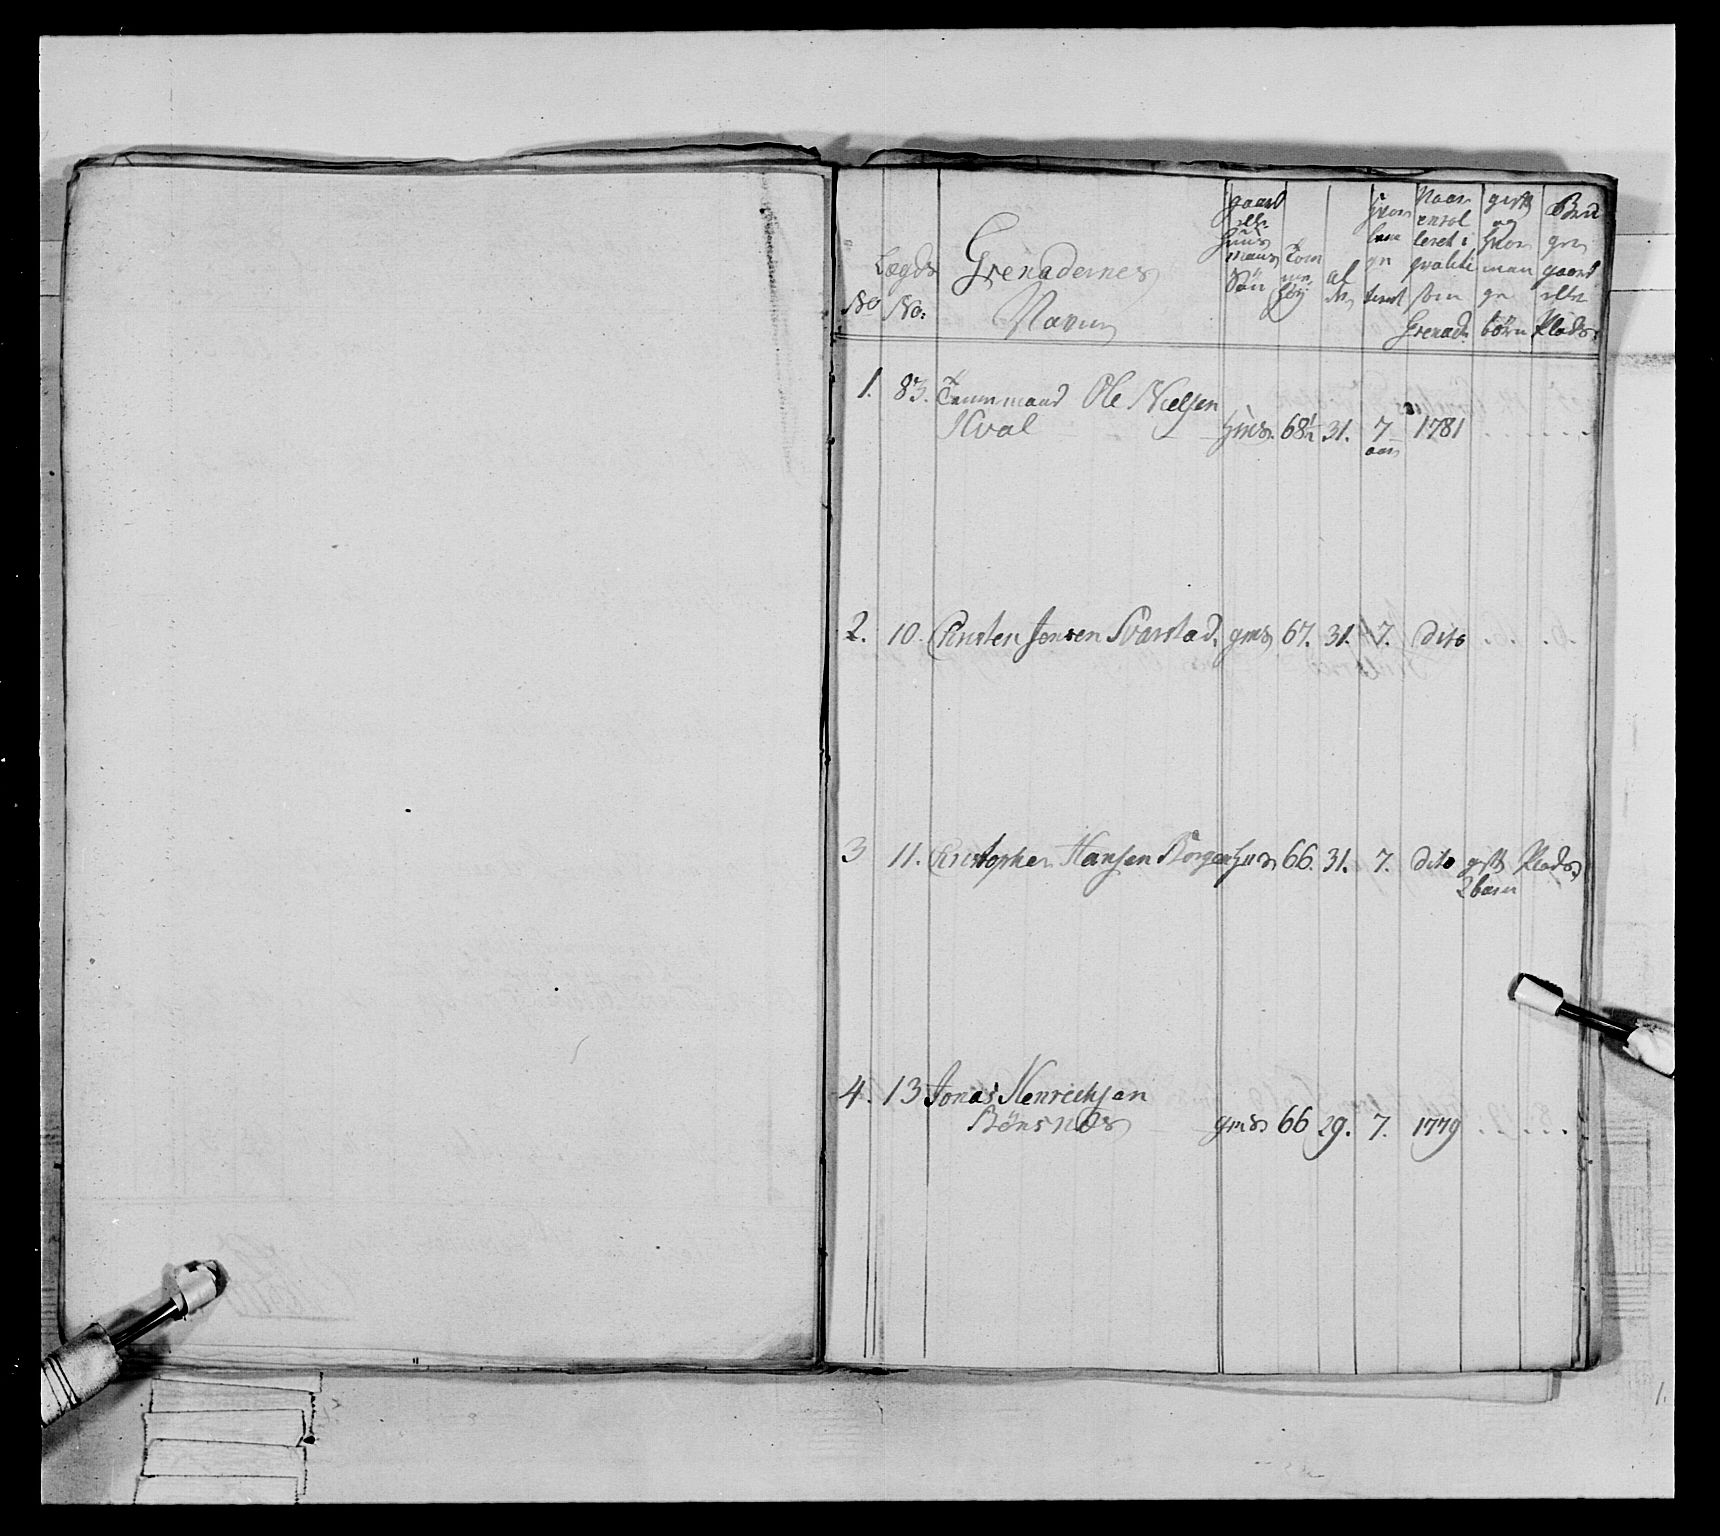 No
Lægds
No:
Grenadernes
Navn
gaard
eller
Huus
mans
Søn
Tom
me
høy
al
der
Hvor
længe
tient
Naar
enrol
leret i
qvalite
som
Grenad.
gift
og
hvor
mange
børn
Bru
ger
gaard
eller
Plads.
1. 83. Tømmermand Ole Nielsen
Hval hms. 68½ 31. 7 1781
aar
2. 10. Christen Jensen Svarstad. gms 67. 31. 7. dito
3 11. Christopher Hansen Borgen hms 66. 31. 7. dito gift Plads.
2 børn
4. 13 Jonas Henrichsen
Bønsnæs gms 66 29. 7. 1779